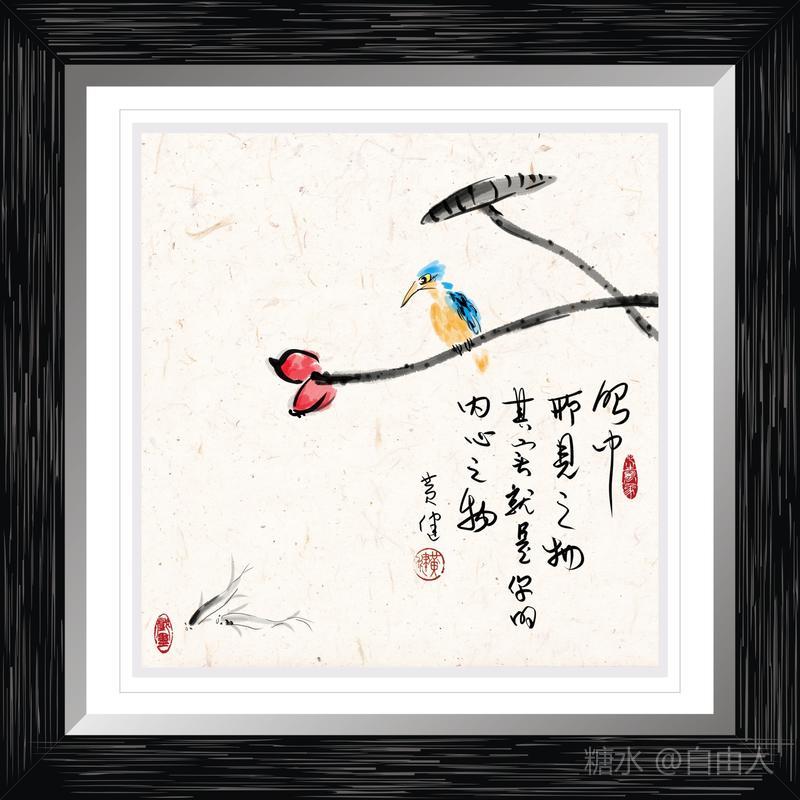 眼中
所見之物
其实就是你的
内心之物
黄健
糖水 @自由人